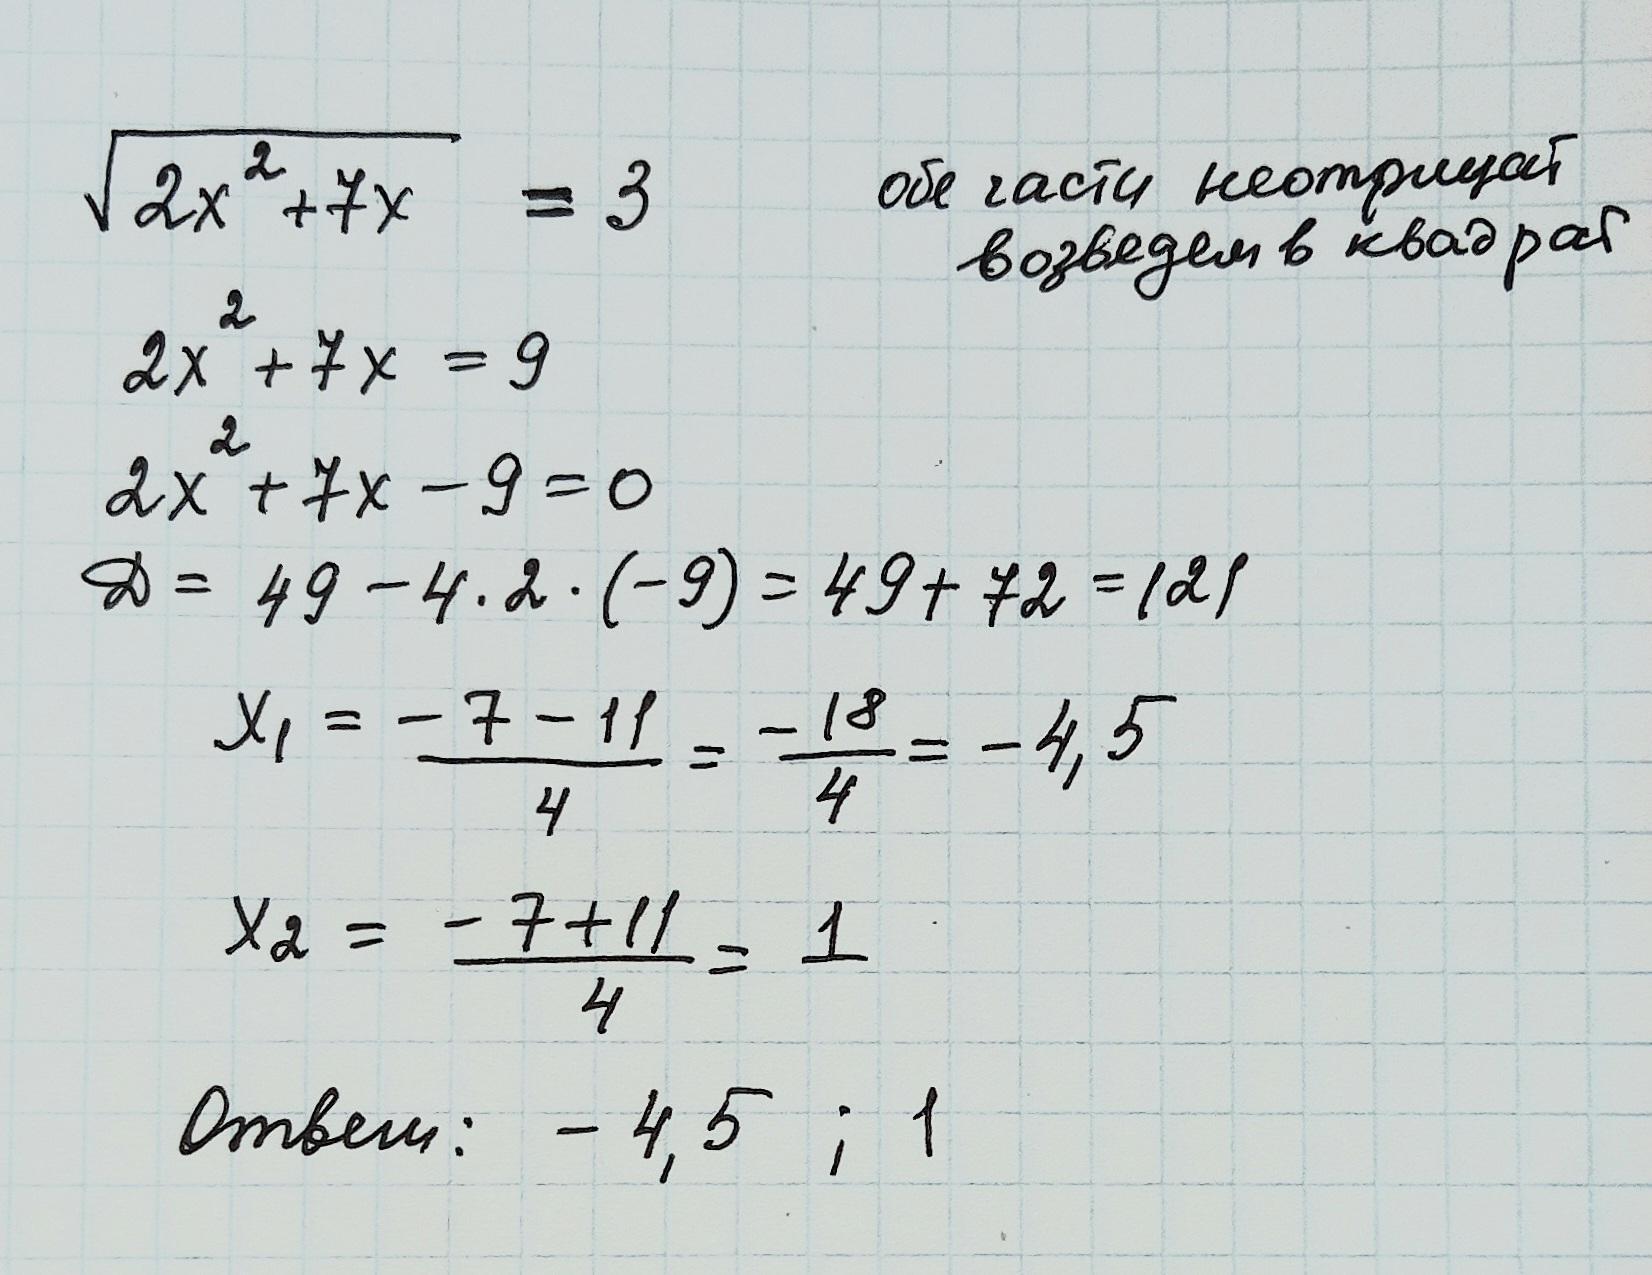 √(2x²+7x) = 3 обе части неотрицат
возведем в квадрат
2x² + 7x = 9
2x² + 7x - 9 = 0
D = 49 - 4 · 2 · (-9) = 49 + 72 = 121
x₁ = (-7 - 11)/4 = -18/4 = -4,5
x₂ = (-7 + 11)/4 = 1
Ответ: -4,5 ; 1